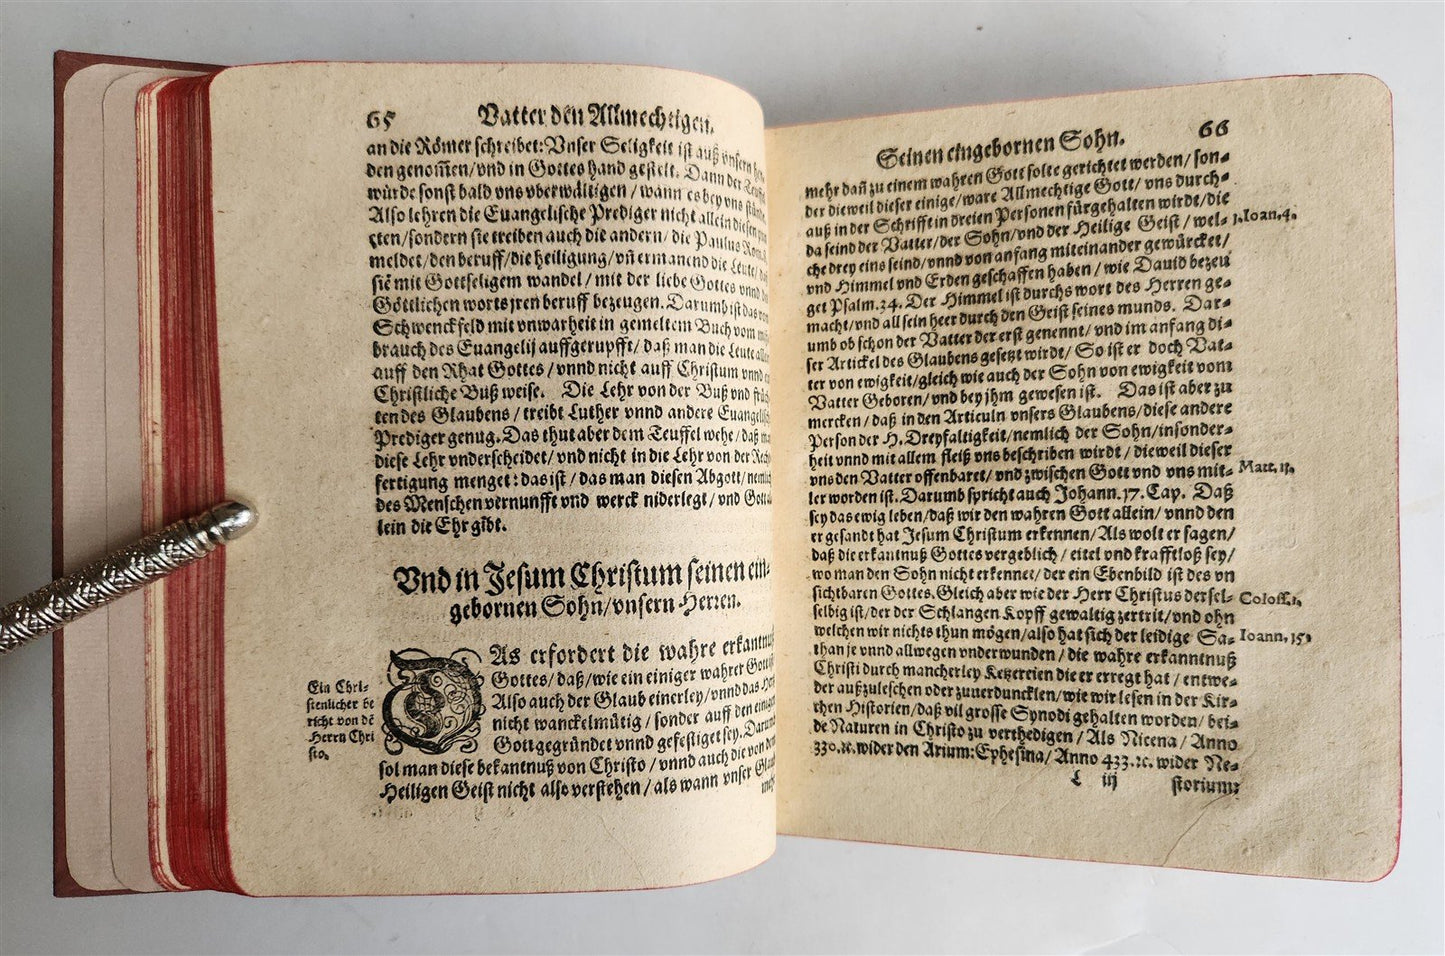 65 Vatter den Allmechtigen.
an die Römer schreibet: Vnser Seligkeit ist auß vnsern
den genom̃en/vnd in Gottes hand gestelt. Dann der Teuffel
würde sonst bald vns vberwältigen / wann es bey vns stünde.
Also lehren die Euangelische Prediger nicht allein diesen
cten/sondern sie treiben auch die andern/ die Paulus Rom. 8.
meldet/den beruff/die heiligung/vñ ermanend die Leute/
sie mit Gottseligem wandel / mit der liebe Gottes vnnd
Göttlichen worts jren beruff bezeugen. Darumb ist das
Schwenckfeld mit vnwarheit in gemeltem Buch vom
brauch des Euangelij auffgerupfft/ daß man die Leute
auff den Rhat Gottes / vnnd nicht auff Christum vnnd
Christliche Buß weise. Die Lehr von der Buß vnd
ten des Glaubens / treibt Luther vnnd andere Euangelisch
Prediger genug. Das thut aber dem Teuffel wehe / daß
diese Lehr vnderscheidet/ vnd nicht in die Lehr von der
fertigung menget: das ist / das man diesen Abgott/
des Menschen vernunfft vnd werck niderlegt / vnd Gott
lein die Ehr gibt.
Vnd in Jesum Christum seinen ein-
gebornen Sohn/vnsern Herren.
Ein Chri-
stenlicher be
richt von dē
Herrn Chri
sto.
DAs erfordert die wahre erkantnuß
Gottes/ daß/wie ein einiger wahrer Gott
Also auch der Glaub einerley/vnnd das
nicht wanckelmütig / sonder auff den einigen
Gott gegründet vnnd gefestiget sey. Darumb
sol man diese bekantnuß von Christo / vnnd auch die von dem
Heiligen Geist nicht also verstehen / als wann vnser Glaub
mehr
Seinen eingebornen Sohn. 66
mehr dañ zu einem wahren Gott solte gerichtet werden/ son-
der dieweil dieser einige/ware Allmechtige Gott/ vns durch-
auß in der Schrifft in dreien Personen fürgehalten wirdt/die
da seind der Vatter/der Sohn/vnd der Heilige Geist / wel-
1. Ioan. 4.
che drey eins seind/vnnd von anfang miteinander gewürcket/
vnd Himmel vnd Erden geschaffen haben / wie Dauid bezeu
get Psalm. 34. Der Himmel ist durchs wort des Herren ge-
macht/vnd all sein heer durch den Geist seines munds. Dar-
umb ob schon der Vatter der erst genennt/ vnd im anfang di-
ser Artickel des Glaubens gesetzt wirdt/ So ist er doch Vat-
ter von ewigkeit/gleich wie auch der Sohn von ewigkeit vom
Vatter Geboren/ vnd bey jhm gewesen ist. Das ist aber zu
mercken / daß in den Articuln vnsers Glaubens/diese andere
Person der H. Dreyfaltigkeit/nemlich der Sohn/insonder-
heit vnnd mit allem fleiß vns beschriben wirdt / dieweil dieser
vns den Vatter offenbaret/ vnd zwischen Gott vnd vns mit-
Matt. 11.
ler worden ist. Darumb spricht auch Johann. 17. Cap. Daß
sey das ewig leben/daß wir den wahren Gott allein/ vnnd den
er gesandt hat Jesum Christum erkennen/ Als wolt er sagen/
daß die erkantnuß Gottes vergeblich / eitel vnd krafftloß sey/
wo man den Sohn nicht erkennet/ der ein Ebenbild ist des vn
sichtbaren Gottes. Gleich aber wie der Herr Christus dersel-
Coloss. 1.
selbig ist/der der Schlangen Kopff gewaltig zertrit/vnd ohn
welchen wir nichts thun mögen/also hat sich der leidige Sa-
Ioann. 15.
than je vnnd allwegen vnderwunden / die wahre erkanntnuß
Christi durch mancherley Ketzereien die er erregt hat / entwe-
der auß zuleschen oder zuuerduncklen/wie wir lesen in der Kir-
chen Historien/daß vil grosse Synodi gehalten worden/ bei-
de Naturen in Christo zu verthedigen / Als Nicena / Anno
330. ꝛc. wider den Arium: Ephesina/ Anno 433. ꝛc. wider Ne-
L iij storium: